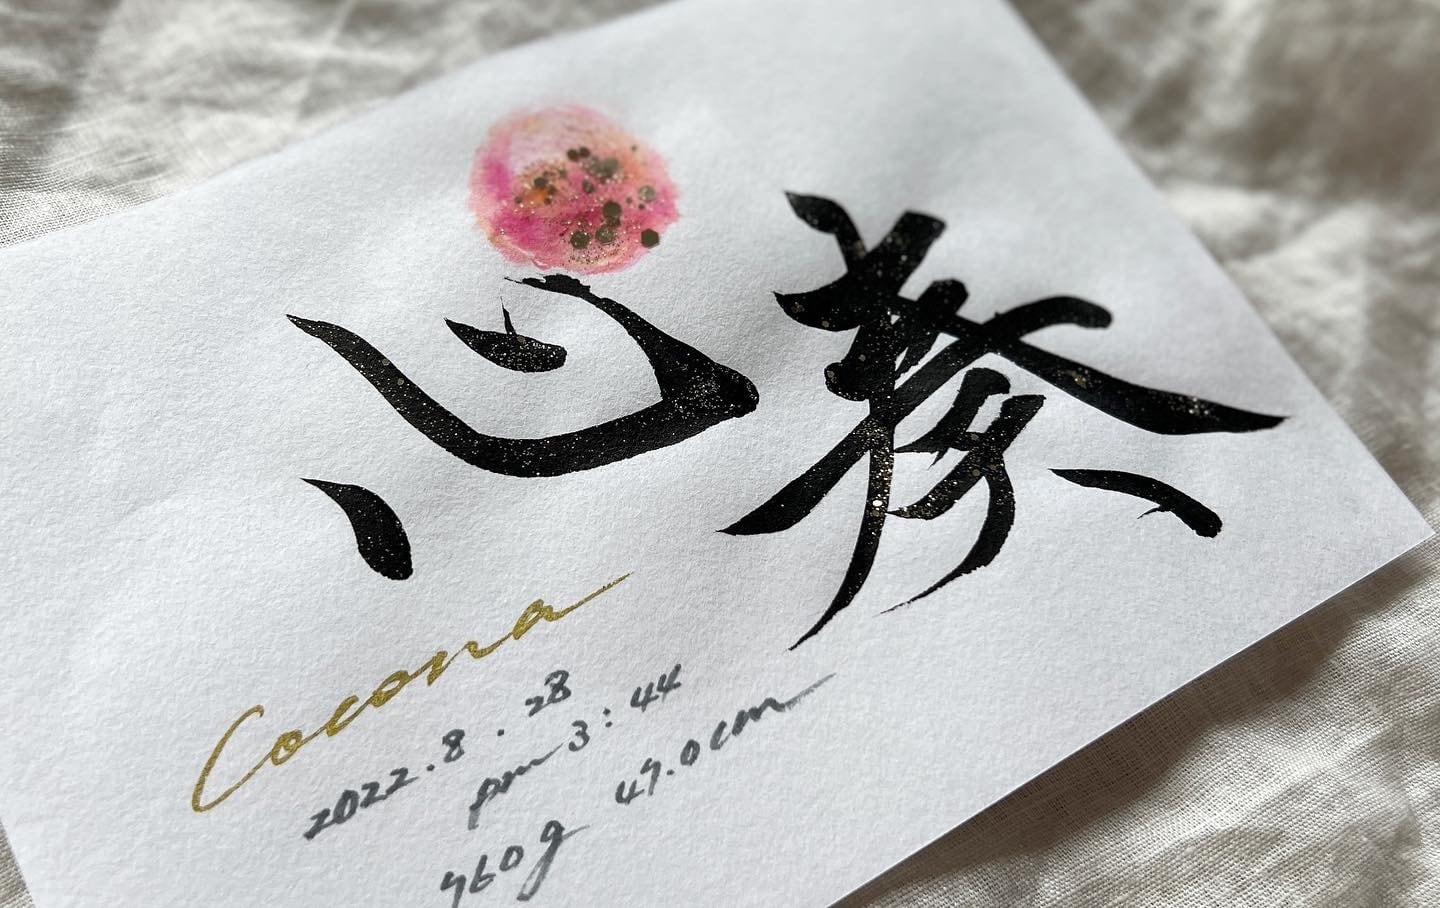 心奏
Cocona
2022.8.28
pm 3:44
960g 49.0cm